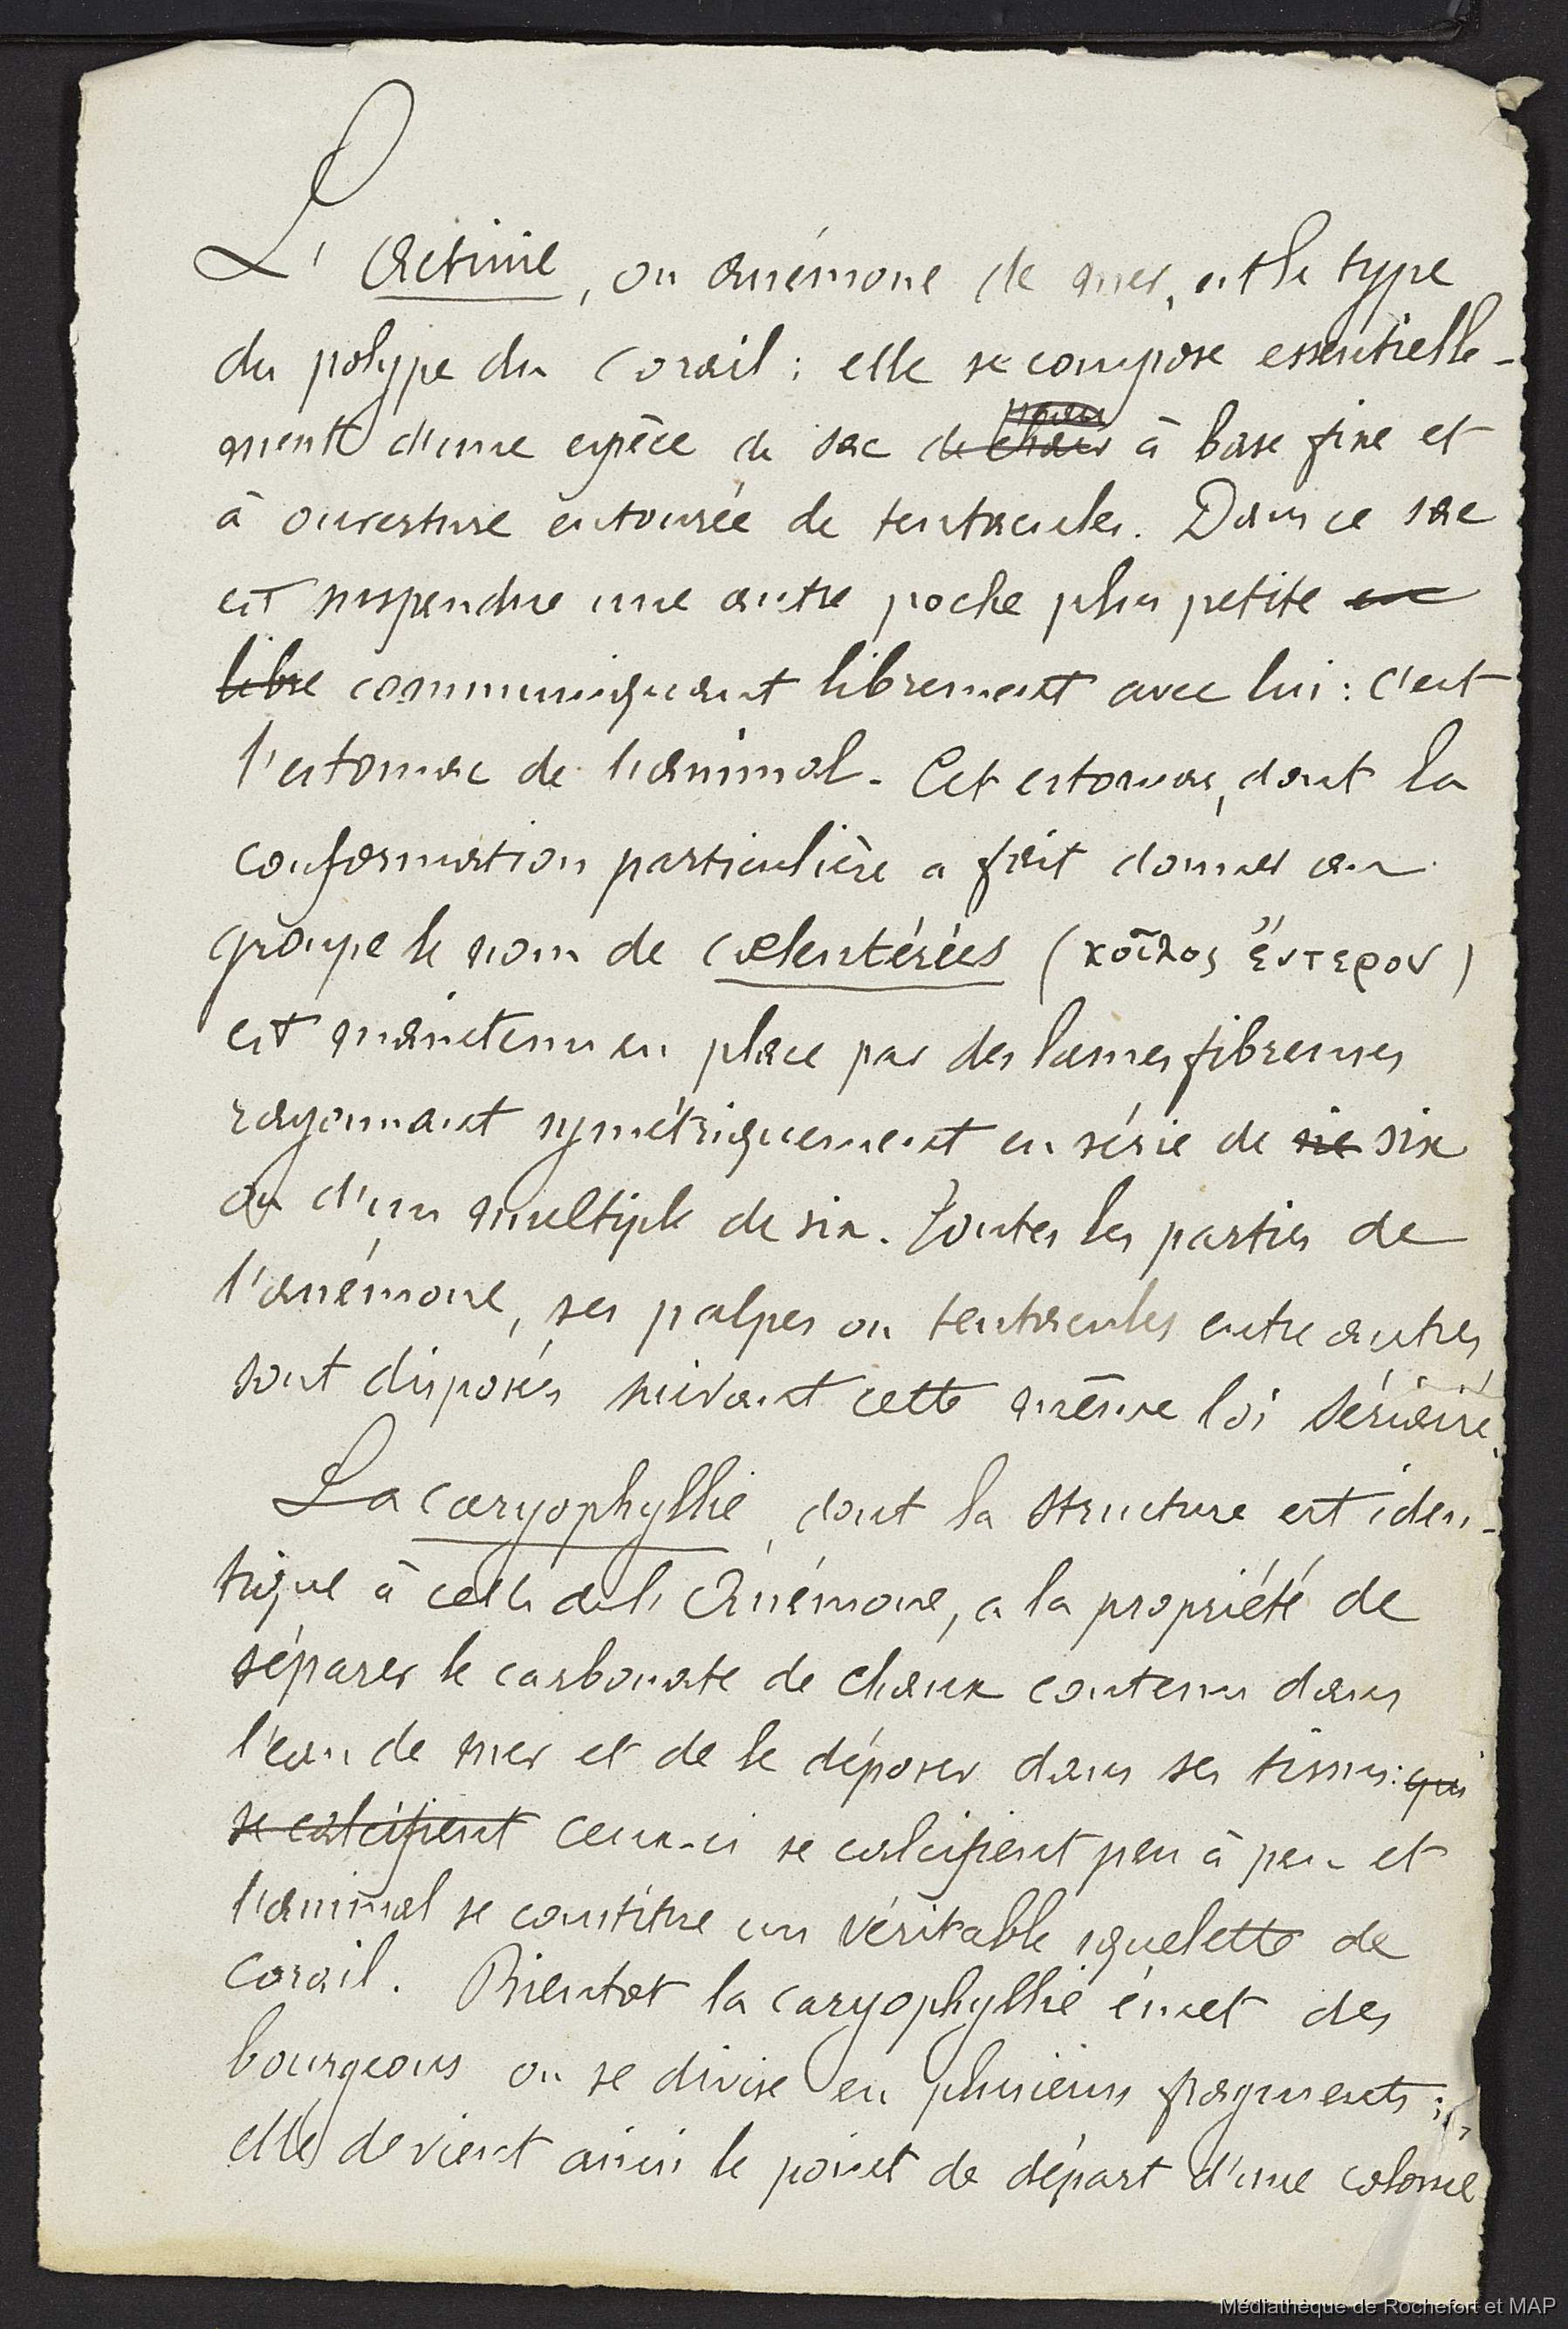 L'Actinie, ou anémone de mer, est le type
du polype du corail : elle se compose essentielle-
ment d'une espèce de sac de chair à base fixe et
à ouverture entourée de tentacules. Dans ce sac
est suspendue une autre poche plus petite en
libre communiquant librement avec lui : c'est
l'estomac de l'animal. Cet estomac, dont la
conformation particulière a fait donner au
groupe le nom de cœlentérées (κοῖλος ἔντερον)
est maintenu en place par des lames fibreuses
rayonnant symétriquement en série de sie six
ou d'un multiple de six. Toutes les parties de
l'anémone, ses palpes ou tentacules entre autres
sont disposés suivant cette même loi sériaire.
La caryophyllie, dont la structure est iden-
tique à celle de l'Anémone, a la propriété de
séparer le carbonate de chaux contenu dans
l'eau de mer et de le déposer dans ses tissus : qui
se calcifient ceux-ci se calcifient peu à peu et
l'animal se constitue un véritable squelette de
corail. Bientot la caryophyllie émet des
bourgeons ou se divise en plusieurs fragments ;
elle devient ainsi le point de départ d'une colonie
Médiathèque de Rochefort et MAP